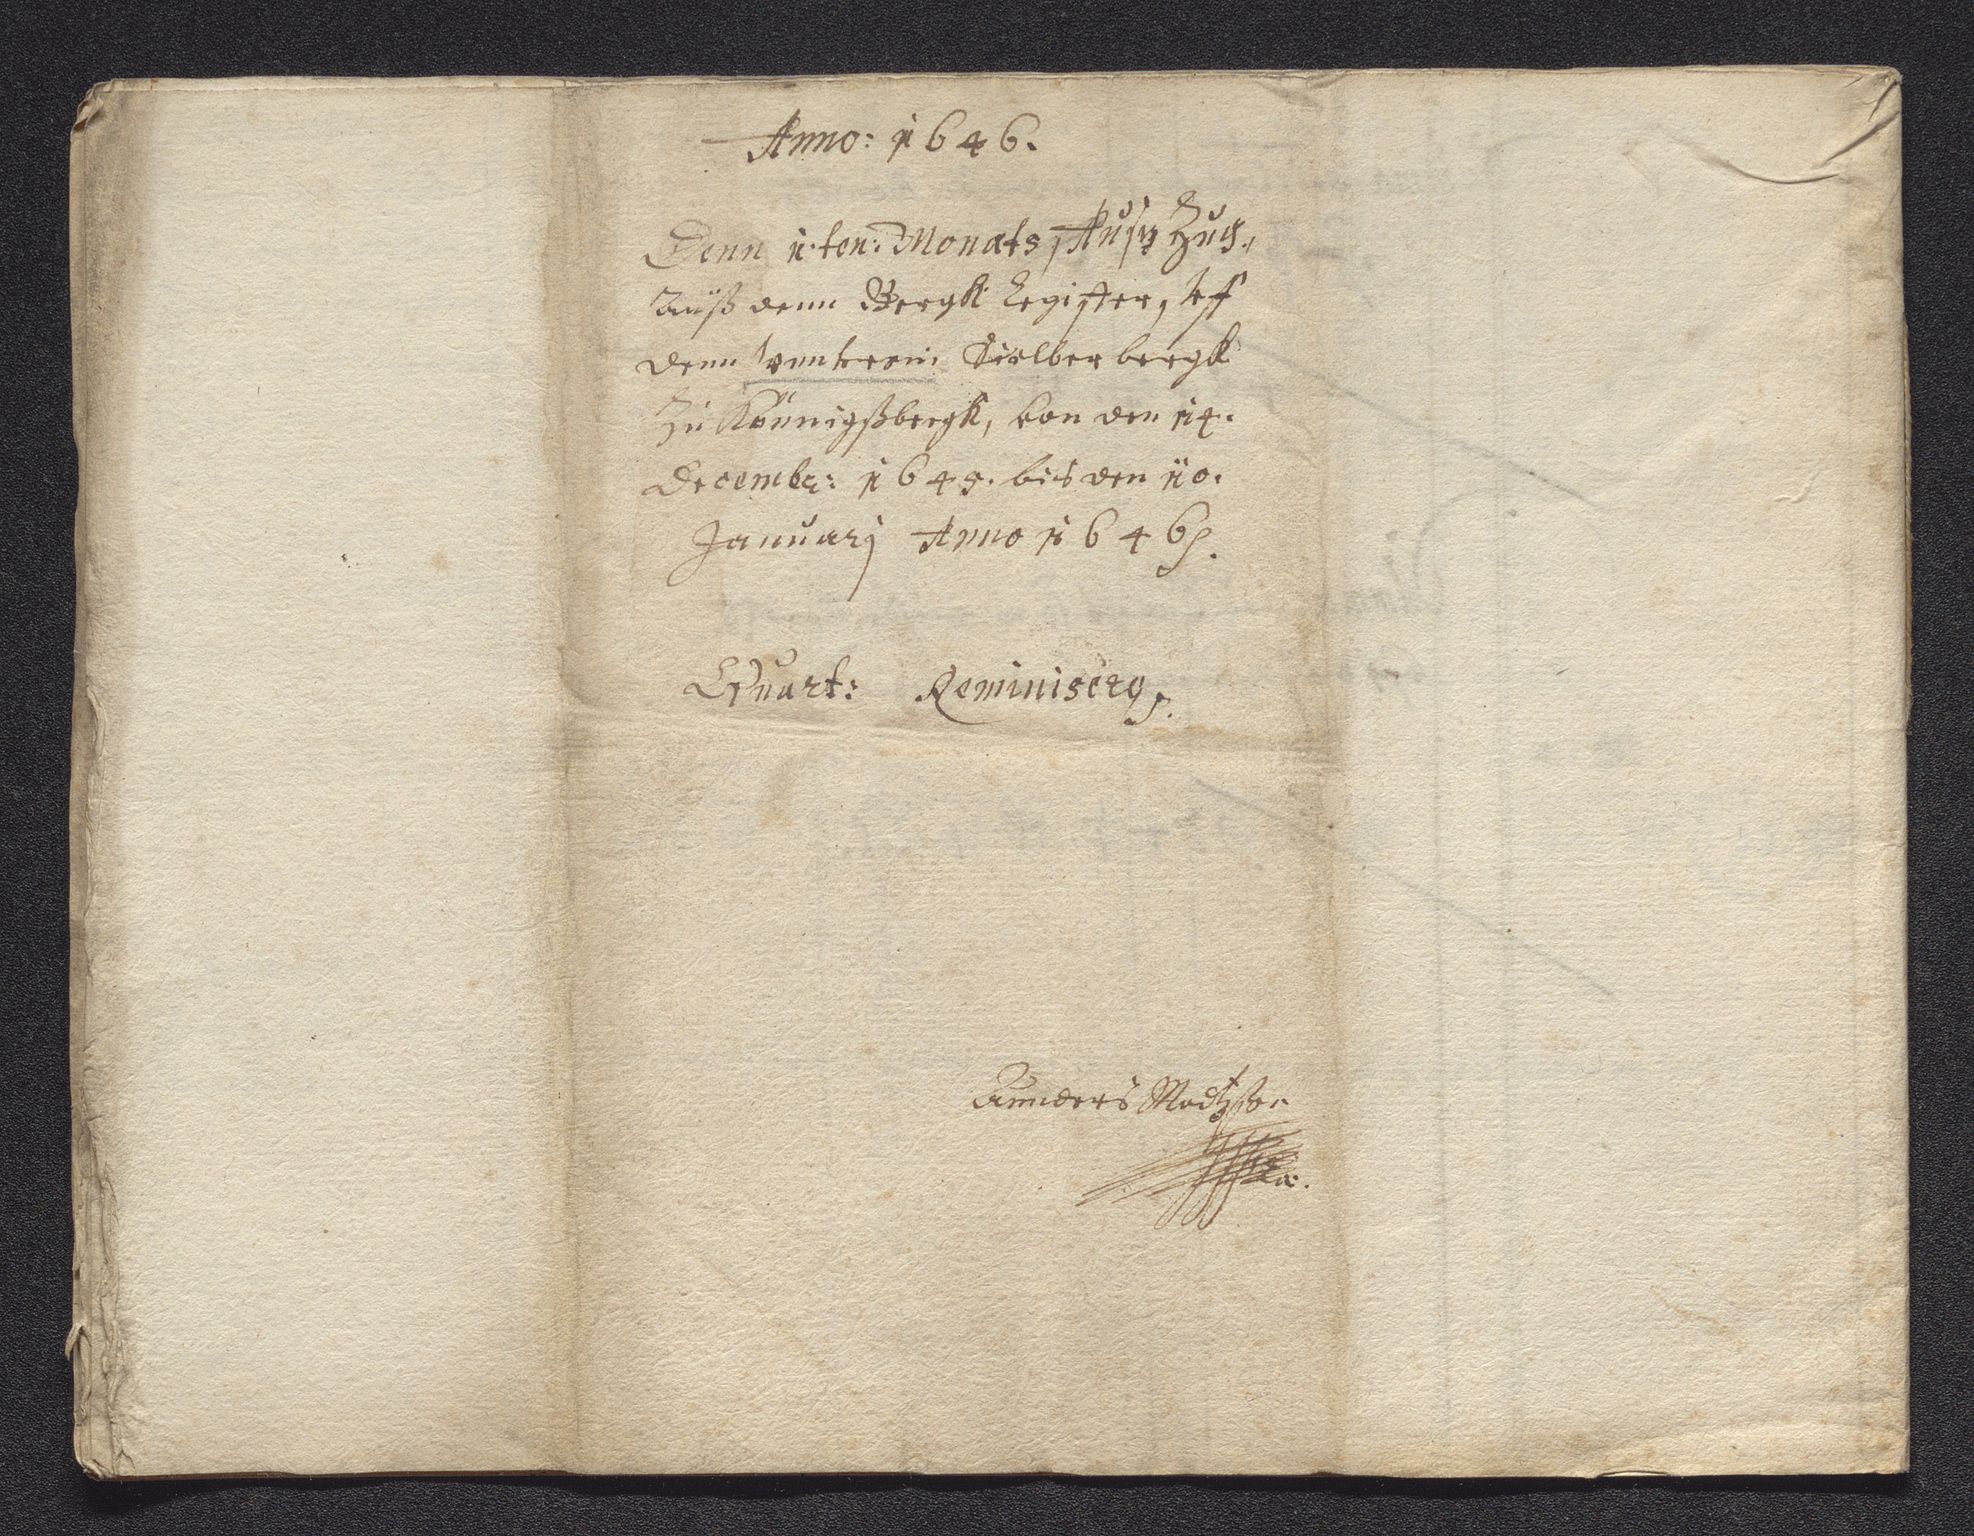 Anno: 1646.
Denn 1.ten: Monats Auß Zug,
Auß denn Bergk Register, uff
denn unterm Sielber bergk
Zu Könnigßbergk, von den 14.
Decembr: 1645. bis den 10.
Januarj Anno 1646.
Quart: Reminiscerɇ.
Annders Madtzson